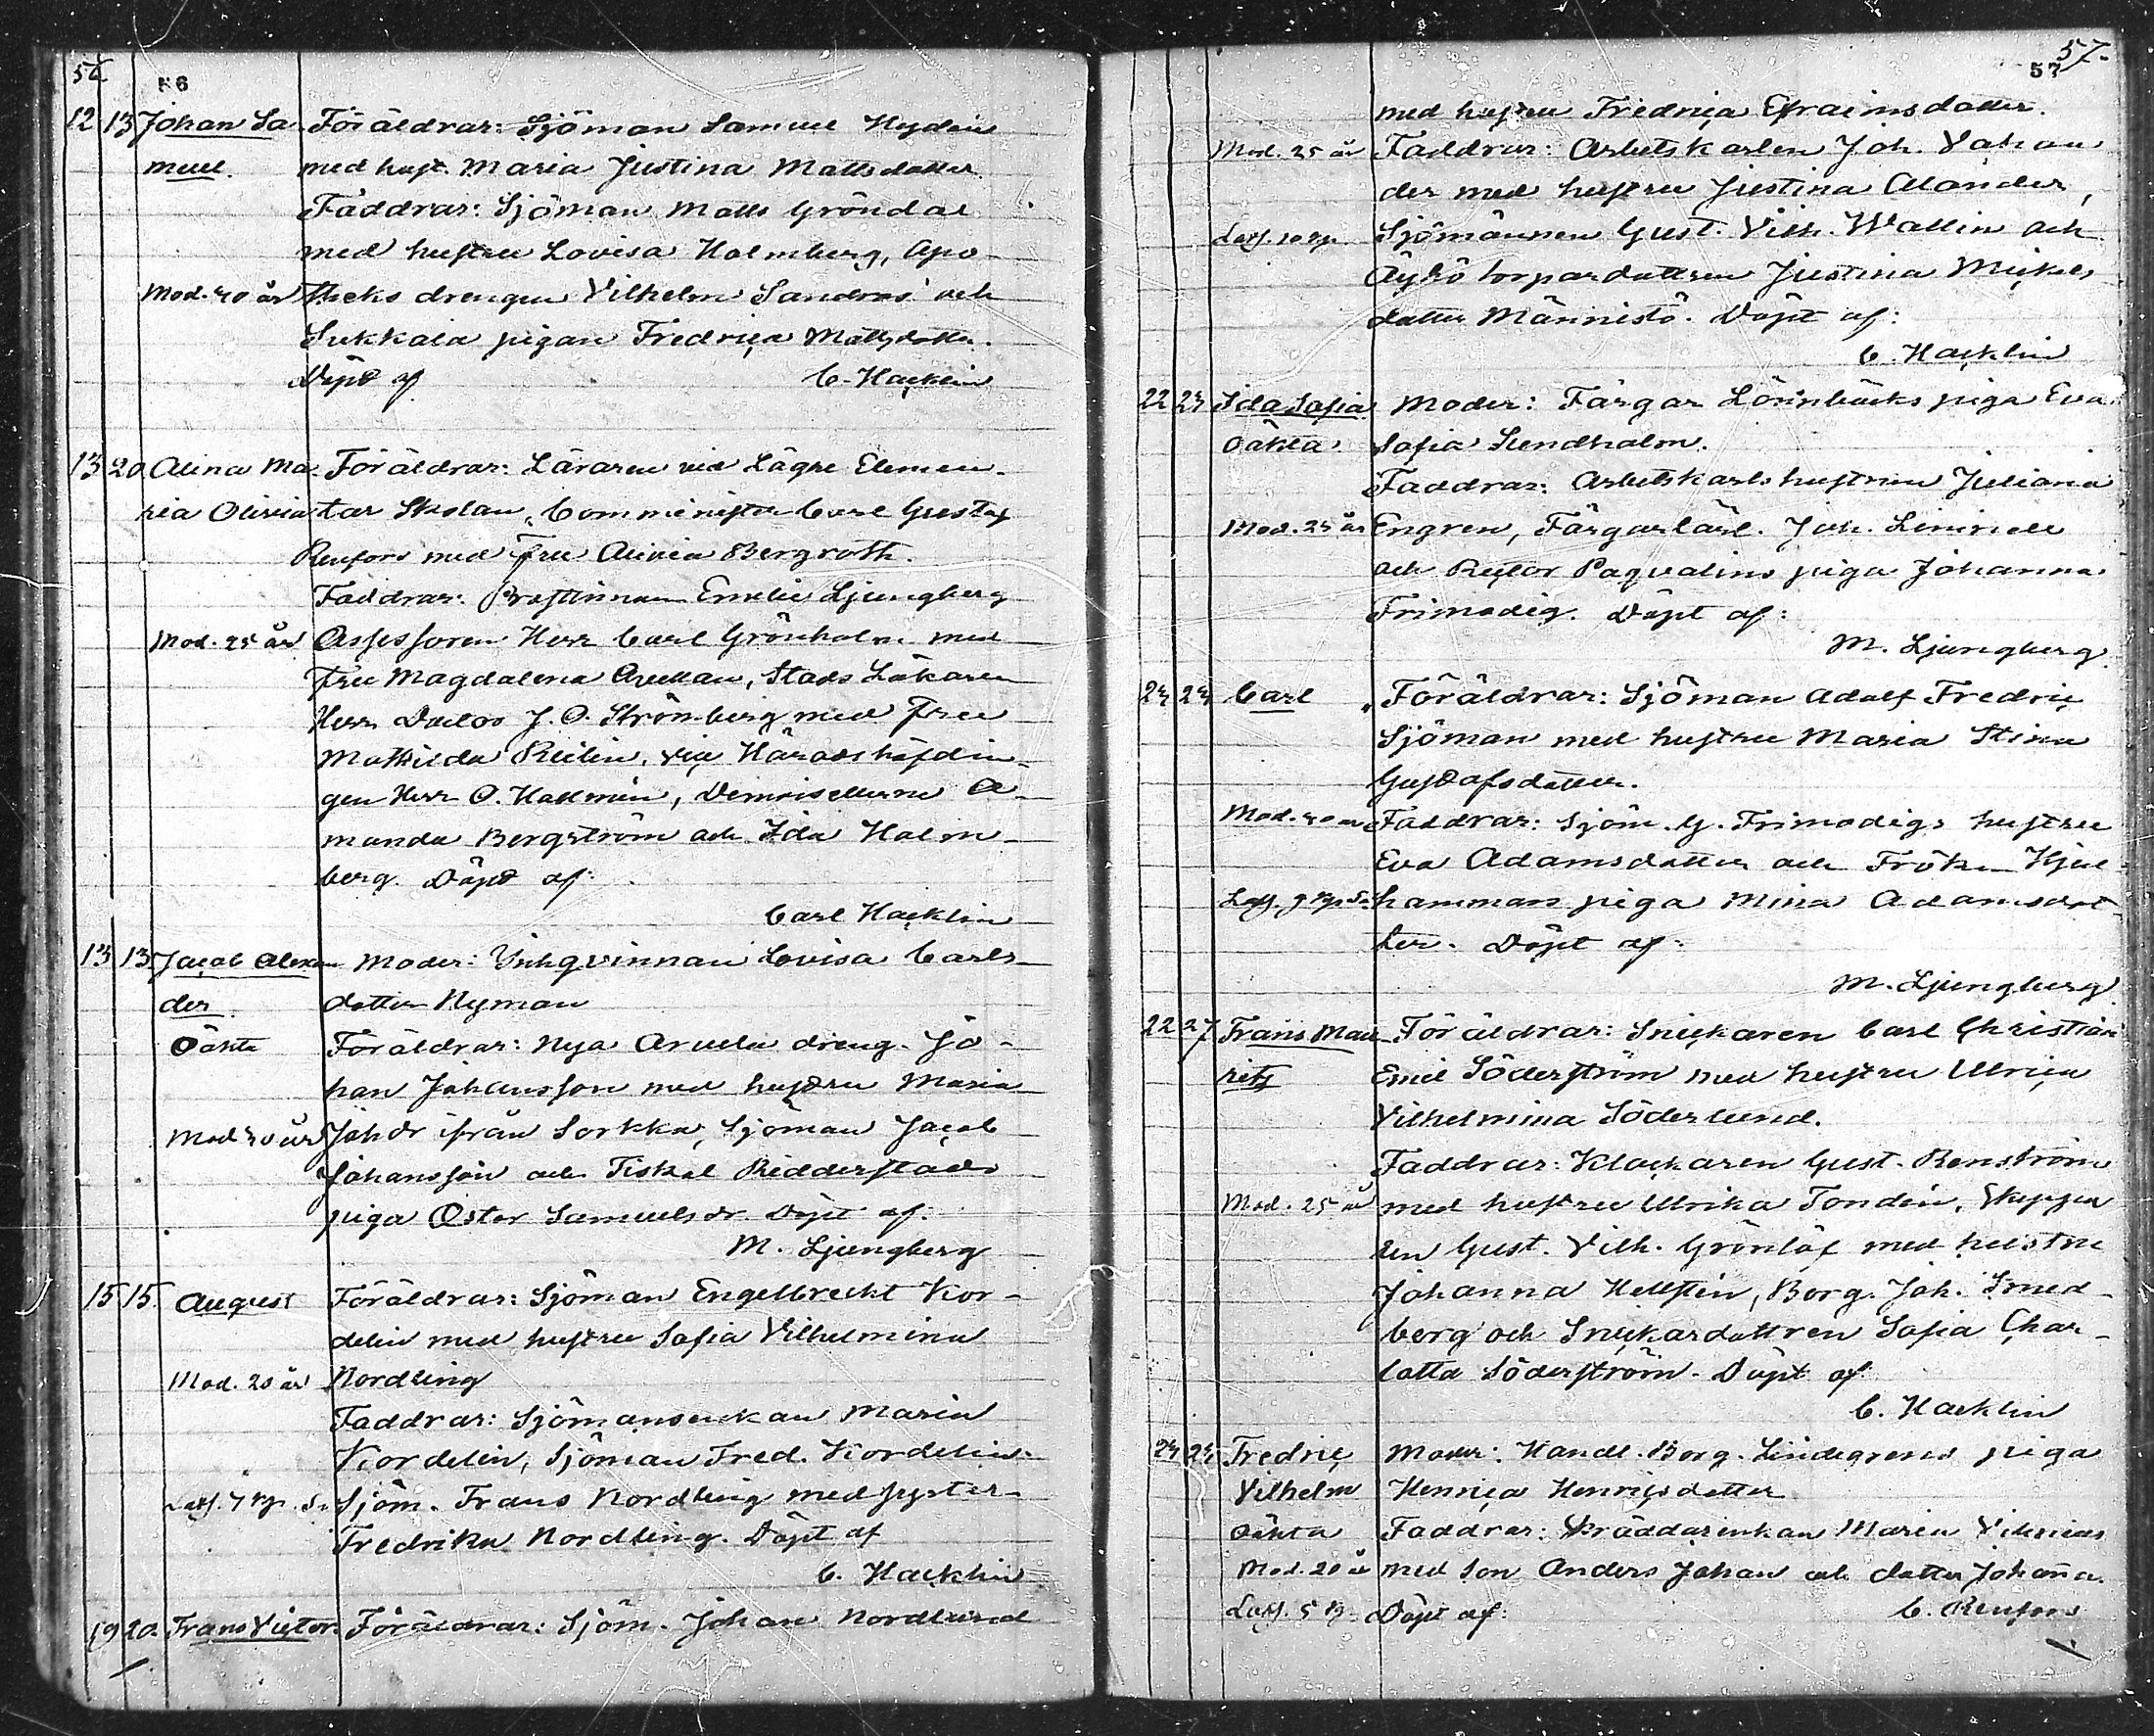 56
12 13 Johan Sa- Föräldrar: Sjöman Samuel Hyden
muel. med hust. Maria Justina Mattsdotter.
Faddrar: Sjöman Matts Gröndal
med hustru Lovisa Holmberg, Apo-
Mod. 40 år theks drengen Vilhelm Sandros och
Sukkala pigan Fredrica Mattsdotter.
Döpt af C. Hacklin
13 20 Alina Ma- Föräldrar: Läraren vid Lägre Elemen-
ria Olivia tar Skolan, Comminister Carl Gustaf
Renfors med Fru Olivia Bergroth.
Faddrar: Prostinnan Emelie Ljungberg
Mod. 25 år Assessoren Herr Carl Grönholm med
Fru Magdalena Avellan, Stads Läkaren
Herr J. O. Strömberg med Fru
Mathilda Relin, Vice Häradshöfdin-
gen Herr O. Hallmén, Demoisellerne A-
manda Bergström och Ida Holm-
berg. Döpt af:
Carl Hacklin
13 13 Jacob Alexan- Moder: Inhqvinnan Lovisa Carls-
der dotter Nyman
Oäkta Föräldrar: Nya Aruela dreng Jo-
han Johansson med hustru Maria
Mod 40 år Johdr ifrån Sorkka, Sjöman Jacob
Johansson och Fiskal Ridderstads
piga Ester Samuelsdr. Döpt af:
M. Ljungberg
15 15. August Föräldrar: Sjöman Engelbrecht Kor-
delin med hustru Sofia Vilhelmina
Mod. 20 år Nordling
Faddrar: Sjömansenkan Maria
Kordelin, Sjöman Fred. Kordelin
Sjöm. Frans Nordling med syster
Fredrika Nordling. Döpt af
C. Hacklin
19 20. Frans Victor Föräldrar: Sjöm. Johan Nordlund
57.
57
med hustru Fredrica Efraimsdotter.
Mod. 25 år Faddrar: Arbetskarlen Joh. Vahan-
der med hustru Justina Alander,
Sjömännen Gust. Vilh. Wallin och
Äyhö torpardottren Justina Mickels
dotter Männistö. Döpt af:
C. Hacklin
22 24 Ida Sofia Moder: Färgar Lönnbäcks piga Eva
Oäkta. Sofia Sundholm.
Faddrar: Arbetskarls hustrun Juliana
Mod. 25 år Engren, Färgarlärl. Joh. Linnell
och Rector Paqvalins piga Johanna
Frimodig. Döpt af:
M. Ljungberg
24 24 Carl Föräldrar: Sjöman Adolf Fredric
Sjöman med hustru Maria Stina
Gustafsdotter.
Mod. 40 år Faddrar: Sjöm. G. Frimodigs hustru
Eva Adamsdotter och Fröken Hjul-
hammars piga Mina Adamsdot-
ter. Döpt af:
M. Ljungberg
22 27 Frans Mau- Föräldrar: Snickaren Carl Christian
ritz Emil Söderström med hustru Ulrica
Vilhelmina Söderlund.
Faddrar: Klockaren Gust. Renström
Mod. 25 år med hustru Ulrika Tondin, Skeppa-
ren Gust. Vilh. Grönlöf med hustru
Johanna Hellstén, Borg. Joh. Smed-
berg och Snickardottren Sofia Char-
lotta Söderström. Döpt af
C. Hacklin
24 24 Fredric Moder: Handl. Borg. Lindegrens piga
Vilhelm Henrica Henricsdotter
Oäkta Faddrar: Skräddarenkan Maria
Mod. 20 år med son Anders Johan och dotter Johanna.
Döpt af: C. Renfors